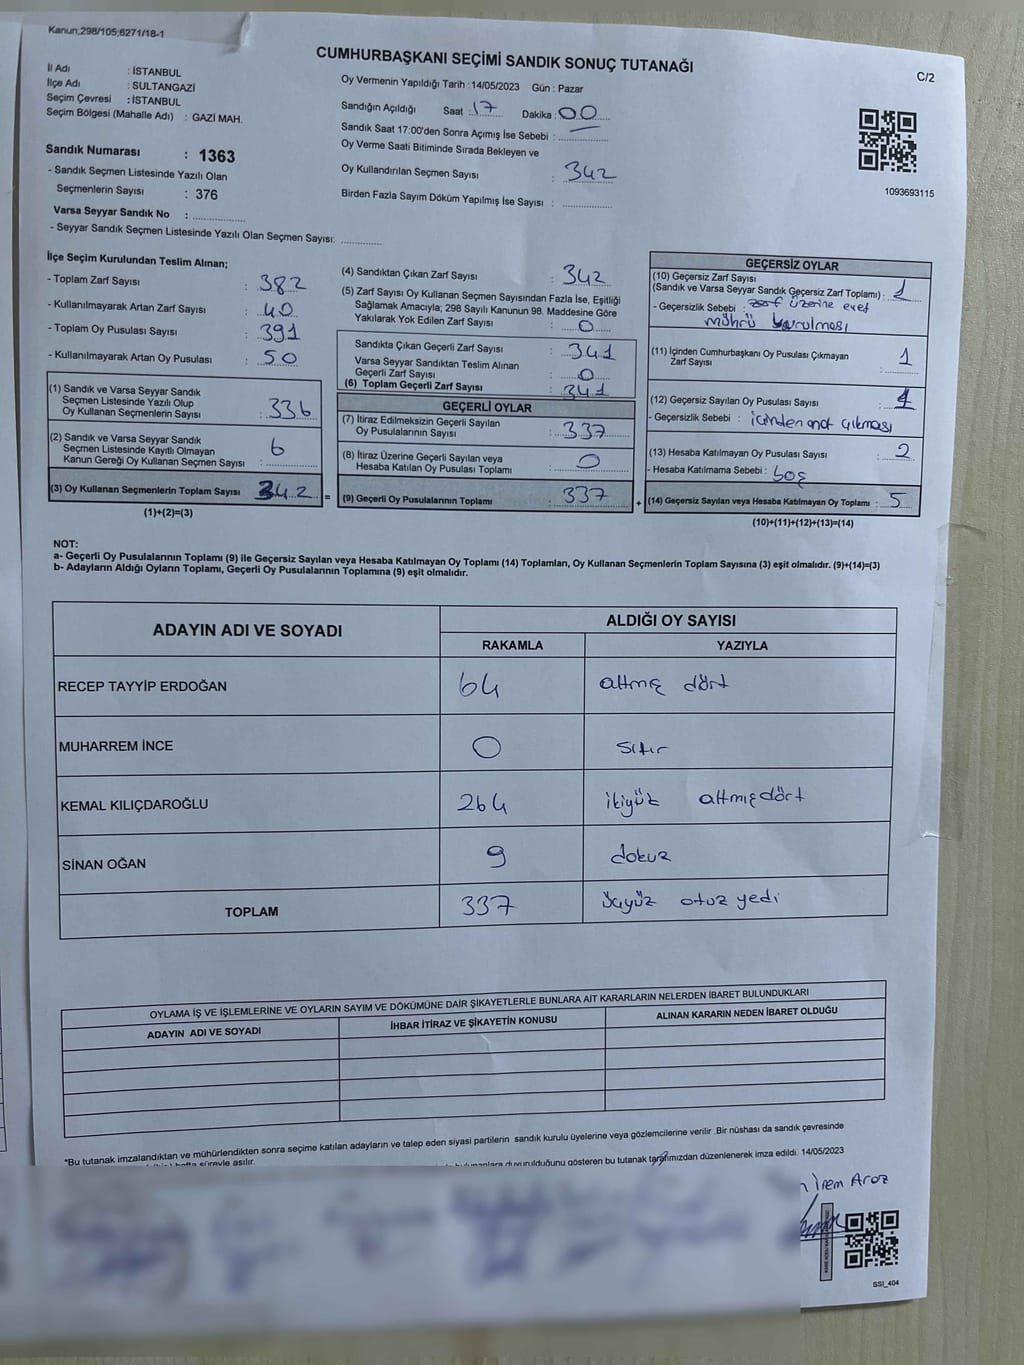 Kanun;298/105;6271/18-1
CUMHURBAŞKANI SEÇİMİ SANDIK SONUÇ TUTANAĞI
C/2
İl Adı : İSTANBUL
İlçe Adı : SULTANGAZİ
Seçim Çevresi : İSTANBUL
Seçim Bölgesi (Mahalle Adı) : GAZİ MAH.
Sandık Numarası : 1363
- Sandık Seçmen Listesinde Yazılı Olan
Seçmenlerin Sayısı : 376
Varsa Seyyar Sandık No :
- Seyyar Sandık Seçmen Listesinde Yazılı Olan Seçmen Sayısı:
Oy Vermenin Yapıldığı Tarih : 14/05/2023 Gün : Pazar
Sandığın Açıldığı Saat 17 Dakika : 00
Sandık Saat 17:00'den Sonra Açımış İse Sebebi :
Oy Verme Saati Bitiminde Sırada Bekleyen ve
Oy Kullandırılan Seçmen Sayısı : 342
Birden Fazla Sayım Döküm Yapılmış İse Sayısı :
1093693115
İlçe Seçim Kurulundan Teslim Alınan;
- Toplam Zarf Sayısı : 382
- Kullanılmayarak Artan Zarf Sayısı : 40
- Toplam Oy Pusulası Sayısı : 391
- Kullanılmayarak Artan Oy Pusulası : 50
(1) Sandık ve Varsa Seyyar Sandık
Seçmen Listesinde Yazılı Olup
Oy Kullanan Seçmenlerin Sayısı : 336
(2) Sandık ve Varsa Seyyar Sandık
Seçmen Listesinde Kayıtlı Olmayan
Kanun Gereği Oy Kullanan Seçmen Sayısı : 6
(3) Oy Kullanan Seçmenlerin Toplam Sayısı 342 =
(1)+(2)=(3)
(4) Sandıktan Çıkan Zarf Sayısı : 342
(5) Zarf Sayısı Oy Kullanan Seçmen Sayısından Fazla İse, Eşitliği
Sağlamak Amacıyla; 298 Sayılı Kanunun 98. Maddesine Göre
Yakılarak Yok Edilen Zarf Sayısı : 0
Sandıkta Çıkan Geçerli Zarf Sayısı : 341
Varsa Seyyar Sandıktan Teslim Alınan
Geçerli Zarf Sayısı : 0
(6) Toplam Geçerli Zarf Sayısı : 341
GEÇERLİ OYLAR
(7) İtiraz Edilmeksizin Geçerli Sayılan
Oy Pusulalarının Sayısı : 337
(8) İtiraz Üzerine Geçerli Sayılan veya
Hesaba Katılan Oy Pusulası Toplamı : 0
(9) Geçerli Oy Pusulalarının Toplamı : 337 +
GEÇERSİZ OYLAR
(10) Geçersiz Zarf Sayısı
(Sandık ve Varsa Seyyar Sandık Geçersiz Zarf Toplamı) : 1
- Geçersizlik Sebebi : zarf üzerine evet
mührü vurulması
(11) İçinden Cumhurbaşkanı Oy Pusulası Çıkmayan
Zarf Sayısı : 1
(12) Geçersiz Sayılan Oy Pusulası Sayısı : 1
- Geçersizlik Sebebi : içinden not çıkması
(13) Hesaba Katılmayan Oy Pusulası Sayısı : 2
- Hesaba Katılmama Sebebi : boş
(14) Geçersiz Sayılan veya Hesaba Katılmayan Oy Toplamı : 5
(10)+(11)+(12)+(13)=(14)
NOT:
a- Geçerli Oy Pusulalarının Toplamı (9) ile Geçersiz Sayılan veya Hesaba Katılmayan Oy Toplamı (14) Toplamları, Oy Kullanan Seçmenlerin Toplam Sayısına (3) eşit olmalıdır. (9)+(14)=(3)
b- Adayların Aldığı Oyların Toplamı, Geçerli Oy Pusulalarının Toplamına (9) eşit olmalıdır.
ADAYIN ADI VE SOYADI
ALDIĞI OY SAYISI
RAKAMLA YAZIYLA
RECEP TAYYİP ERDOĞAN 64 altmış dört
MUHARREM İNCE 0 sıfır
KEMAL KILIÇDAROĞLU 264 ikiyüz altmışdört
SİNAN OĞAN 9 dokuz
TOPLAM 337 üçyüz otuz yedi
OYLAMA İŞ VE İŞLEMLERİNE VE OYLARIN SAYIM VE DÖKÜMÜNE DAİR ŞİKAYETLERLE BUNLARA AİT KARARLARIN NELERDEN İBARET BULUNDUKLARI
ADAYIN ADI VE SOYADI İHBAR İTİRAZ VE ŞİKAYETİN KONUSU ALINAN KARARIN NEDEN İBARET OLDUĞU
*Bu tutanak imzalandıktan ve mühürlendikten sonra seçime katılan adayların ve talep eden siyasi partilerin sandık kurulu üyelerine veya gözlemcilerine verilir .Bir nüshası da sandık çevresinde
hafta süreyle asılır. duyurulduğunu gösteren bu tutanak tarafımızdan düzenlenerek imza edildi. 14/05/2023
İrem Araz
SSI_404